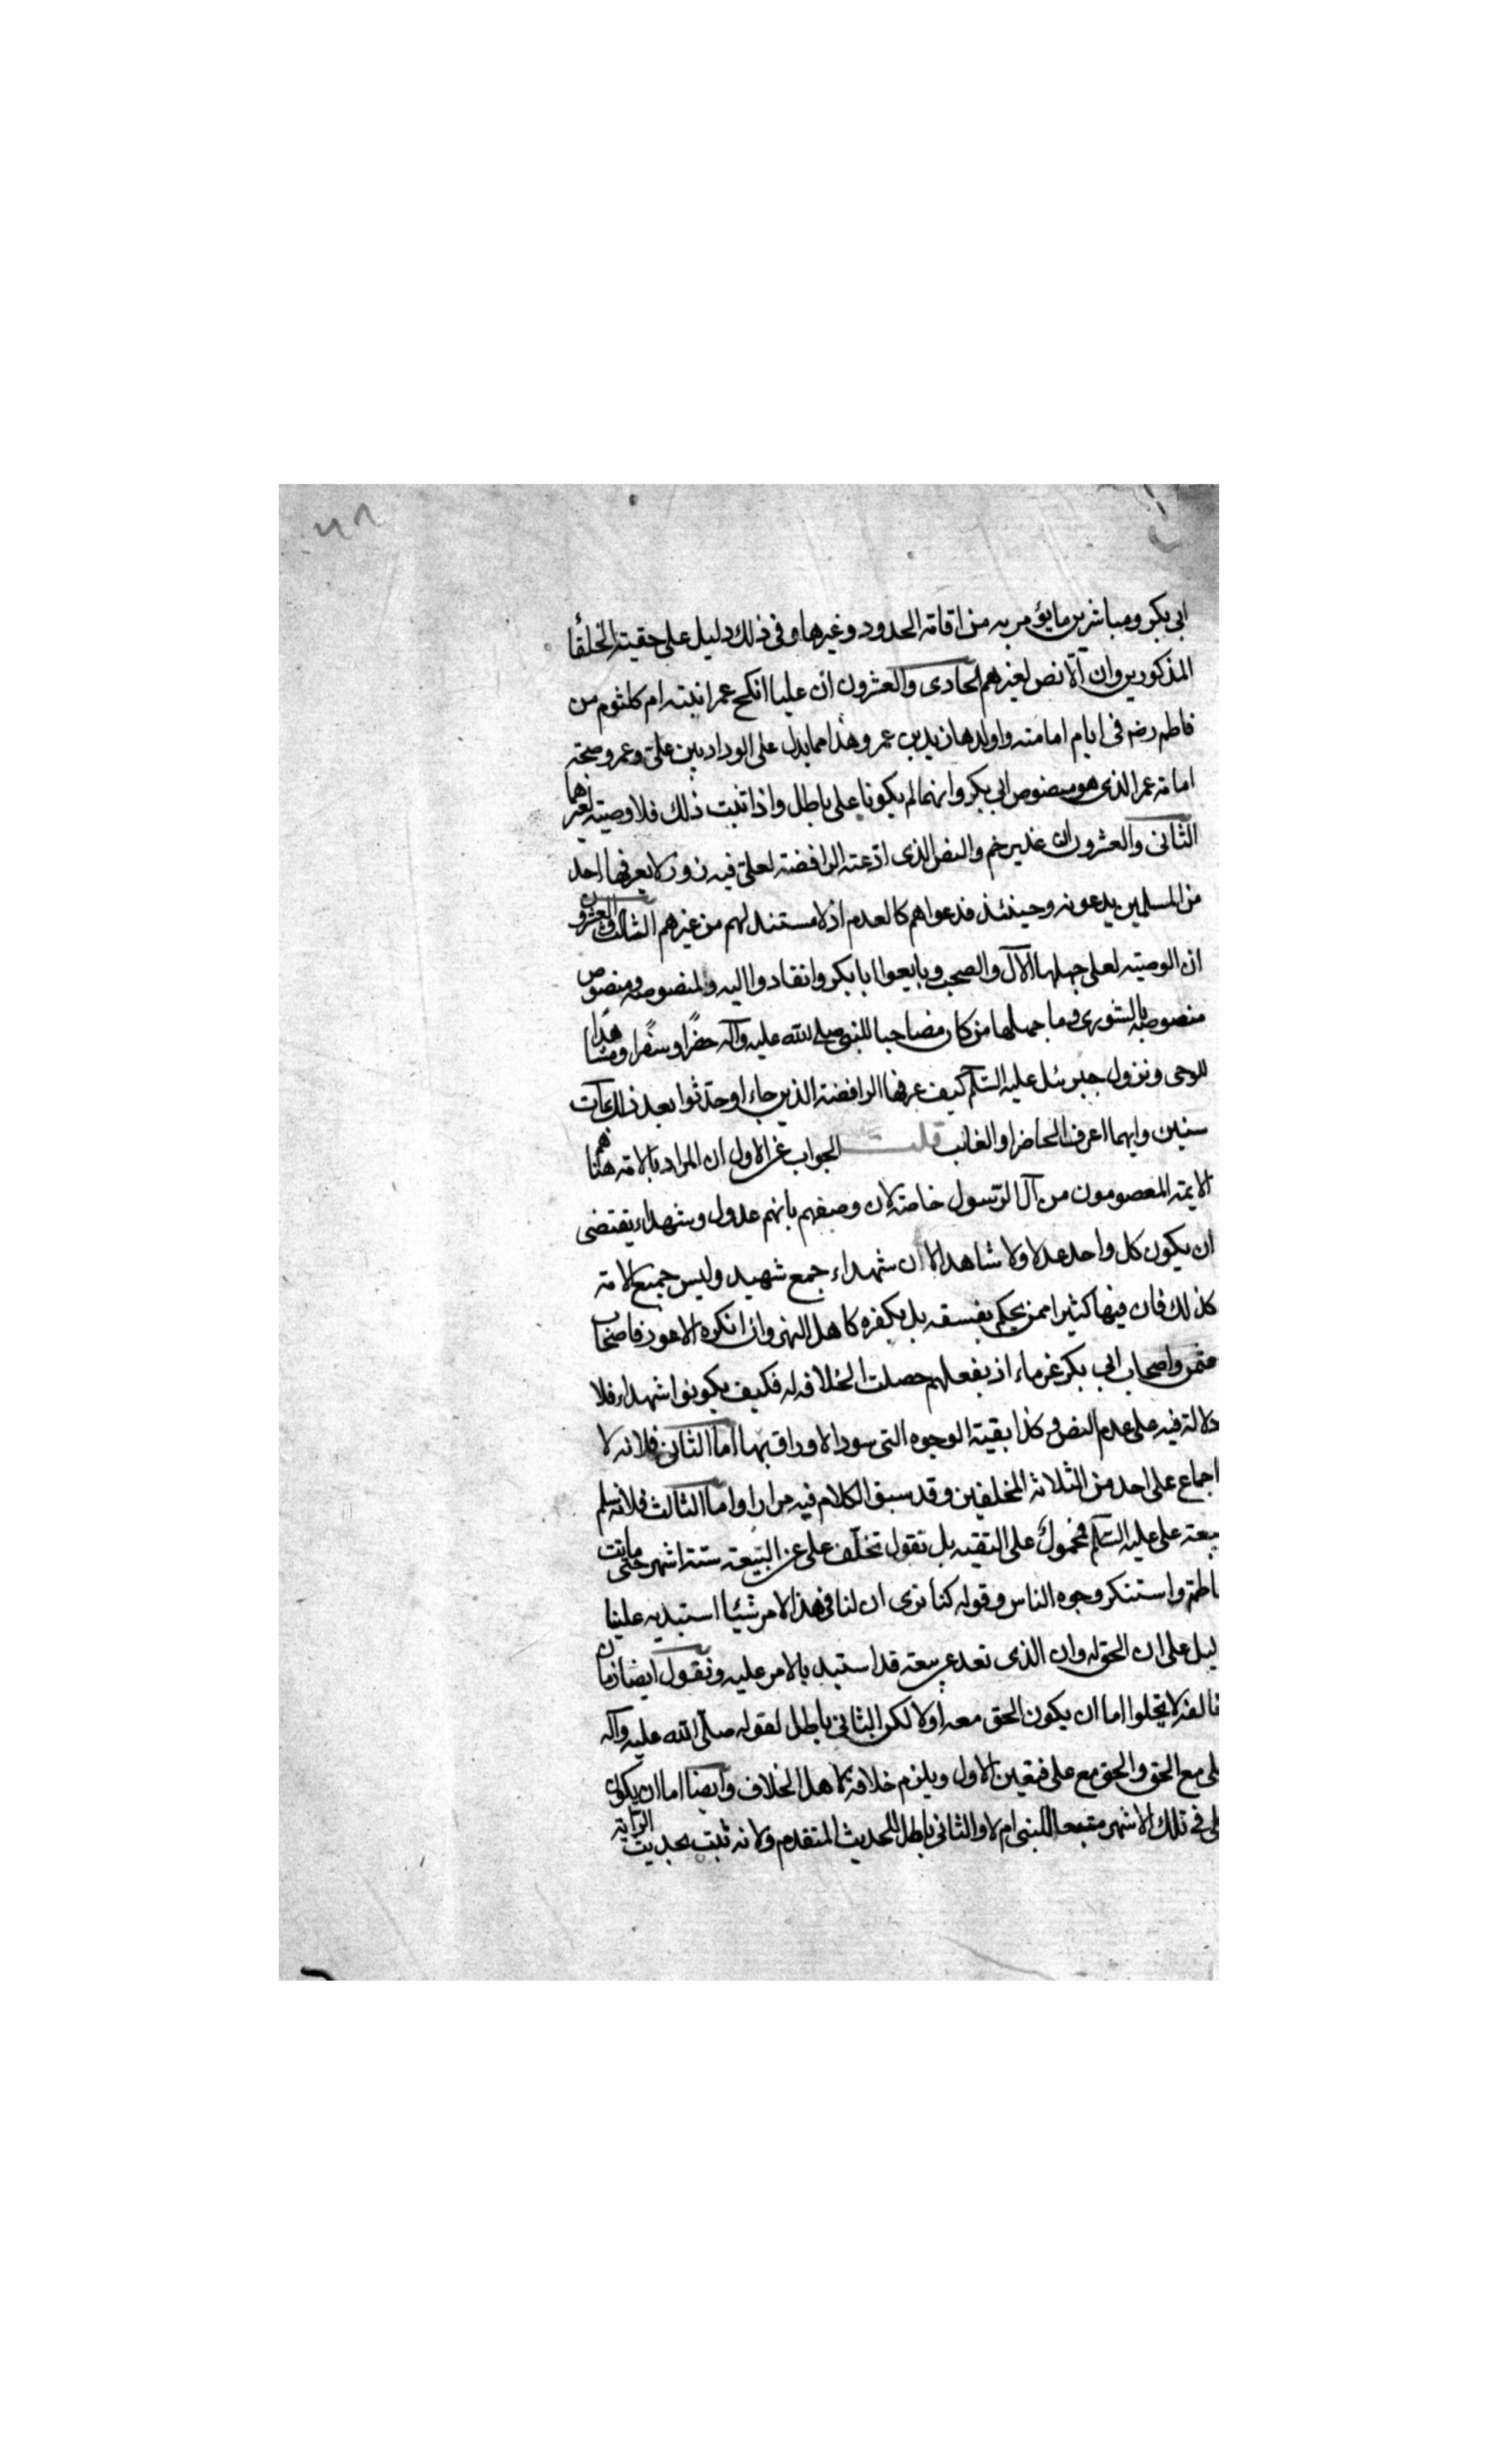 ابى بكر ومباشرين مايؤمر به من اقامة الحدود وغيرها وفى ذلك دليل على حقية الخلفا
المذكورين وان لا نص لغيرهم الحادى والعشرون ان عليا انكح عمر ابنته ام كلثوم من
فاطمه رضه فى ايام امامته واولدها زيد بن عمر وهذا مما يدل على الوداد بين على وعمر وصحة
امامة عمر الذى هو منصوص ابى بكر وانهما لم يكونا على باطل واذا ثبت ذلك فلا وصية لغيرهما
الثانى والعشرون ان غدير خم والنص الذى ادعته الرافضة لعلى فيه زور لا يعرفها احد
من المسلمين يدعونه وحينئذ فدعواهم كالعدم اذ لا مستند لهم من غيرهم الثالث والعشرون
ان الوصية لعلى جهلها الآل والصحب وبايعوا ابا بكر وانقادوا اليه ولمنصوصه ومنصوص
منصوصه بالشورى وما جهلها من كان مصاحبا للنبى صلى الله عليه وآله حضرا وسفرا ومشاهدا
للوحى ونزول جبرئيل عليه السلام كيف عرفها الرافضة الذين جاءوا وحدثوا بعد ذلك بمآت
سنين وايهما اعرف الحاضر او الغائب قلت الجواب عن الاول ان المراد بالامة هنا هم
الايمة المعصومون من آل الرسول خاصة لان وصفهم بانهم عدول وشهداء يقتضى
ان يكون كل واحد عدلا ولا شاهدا لان شهداء جمع شهيد وليس جميع الامة
كذلك فان فيها كثيرا ممن يحكم بفسقه بل بكفره كاهل النهر وان انكره الاعور فاصحاب
عثمن واصحاب ابى بكر غرماء اذ بفعلهم حصلت الخلافة له فكيف يكونوا شهداء فلا
دلالة فيه على عدم النص وكذا بقية الوجوه التى سود الاوراق بها اما الثانى فلانه لا
اجماع على احد من الثلاثة المخلفين وقد سبق الكلام فيه مرارا واما الثالث فلانه سلم
بيعة على عليه السلام فمحمول على التقيه بل نقول تخلف على عن البيعة ستة اشهر حتى ماتت
فاطمة واستنكر وجوه الناس وقوله كنا نرى ان لنا فى هذا الامر شيئا استبد به علينا
دليل على ان الحق له وان الذى تعد عن بيعته قد استبد بالامر عليه ونقول ايضا زمان
تخالفه لا يخلوا اما ان يكون الحق معه اولا لكن الثانى باطل لقوله صلى الله عليه وآله
على مع الحق والحق مع على فتعين الاول ويلزم خلافة لاهل الخلاف وايضا اما ان يكون
على فى تلك الاشهر متبعا للنبى ام لا والثانى باطل للحديث المتقدم ولانه ثبت بحديث الراية